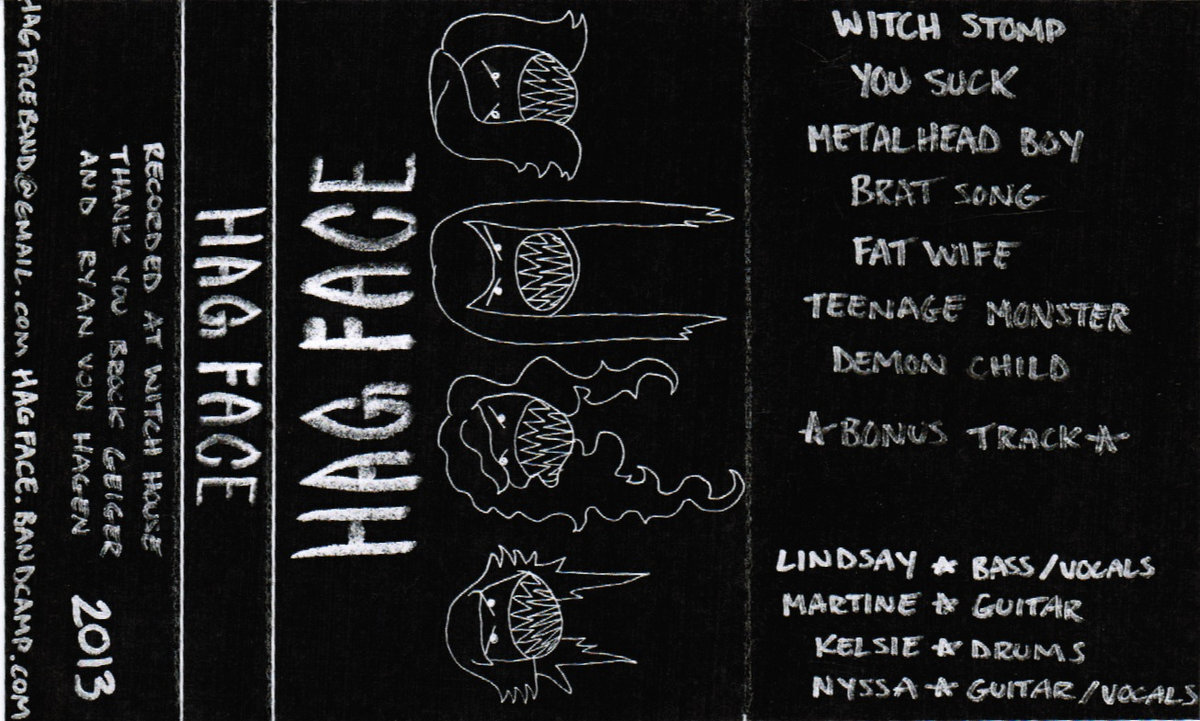 HAGFACEBAND@GMAIL.COM HAGFACE.BANDCAMP.COM
RECORDED AT WITCH HOUSE
THANK YOU BROCK GEIGER
AND RYAN VON HAGEN
2013
HAG FACE
HAG FACE
WITCH STOMP
YOU SUCK
METALHEAD BOY
BRAT SONG
FAT WIFE
TEENAGE MONSTER
DEMON CHILD
☆BONUS TRACK☆
LINDSAY ☆ BASS/VOCALS
MARTINE ☆ GUITAR
KELSIE ☆ DRUMS
NYSSA ☆ GUITAR/VOCALS